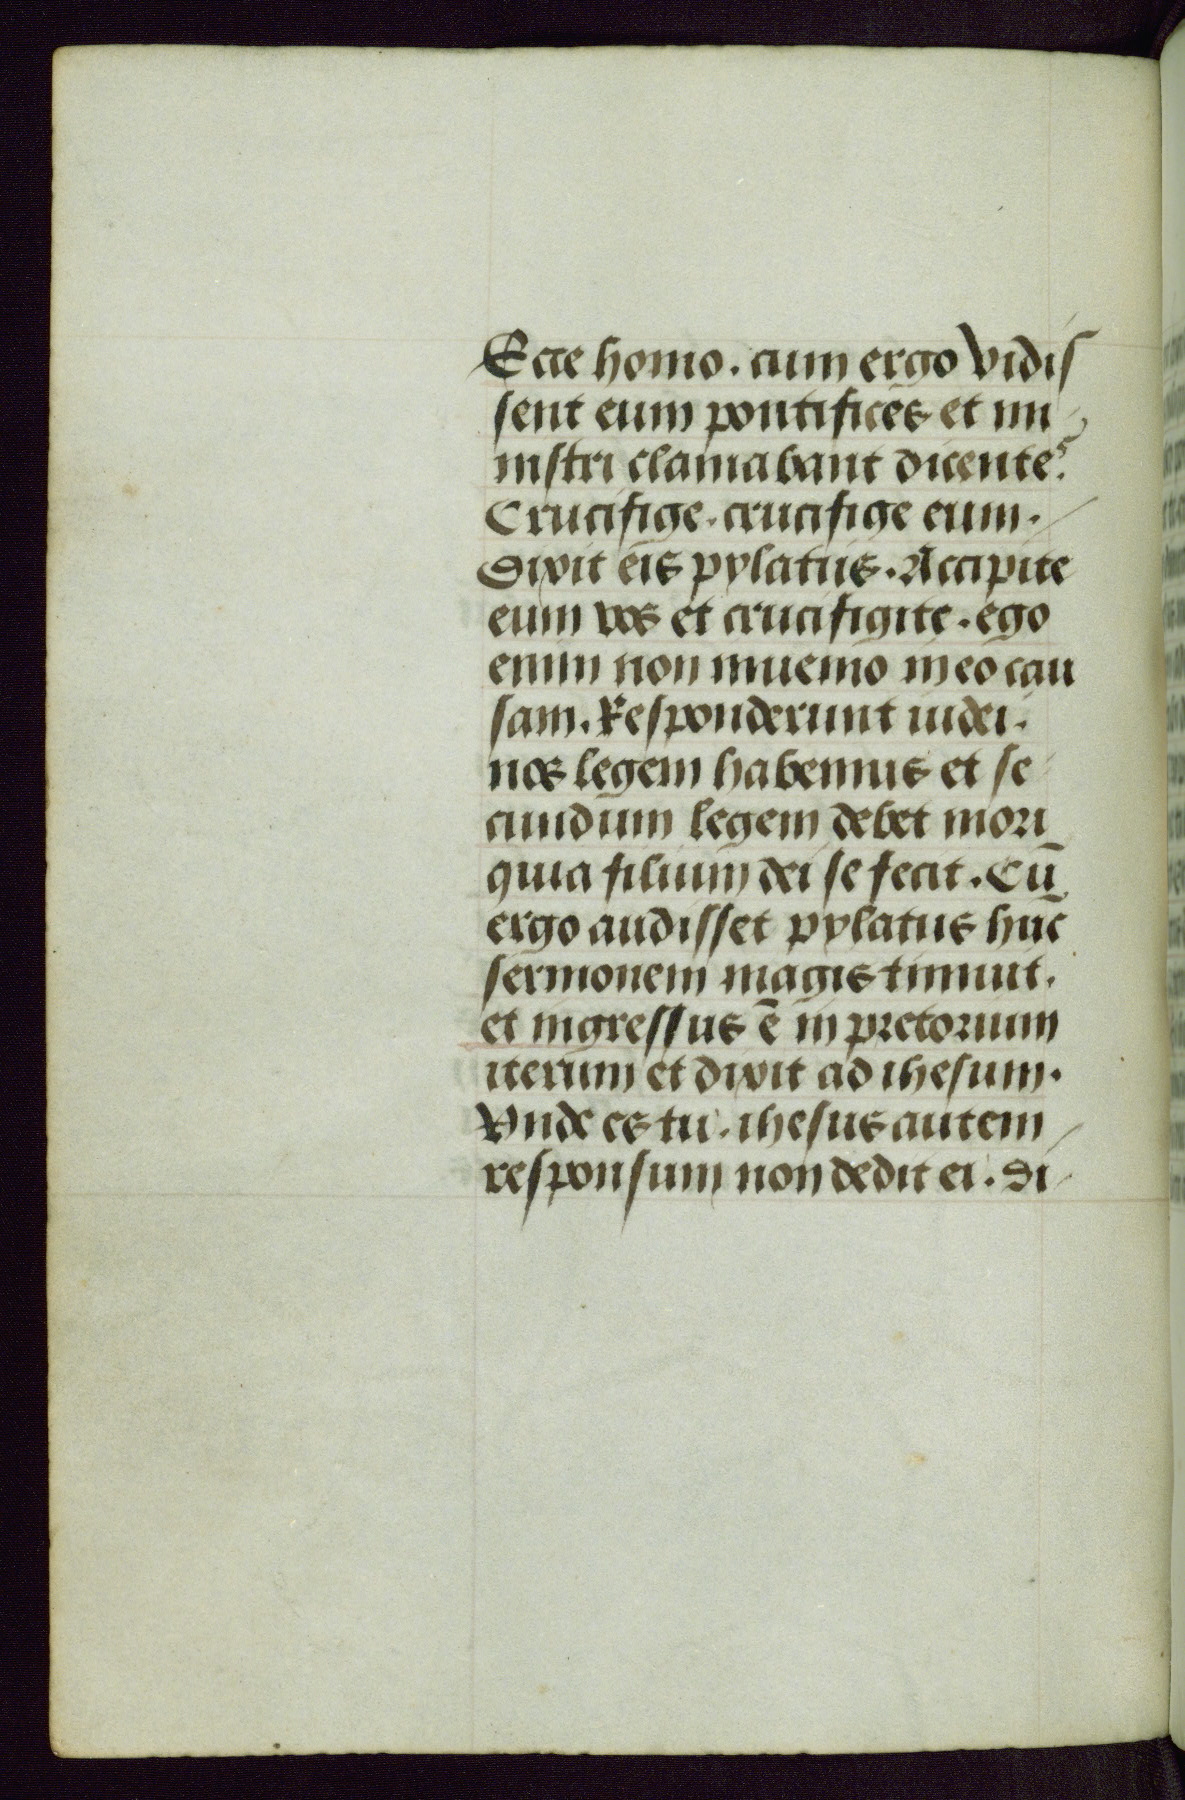 Ecce homo. cum ergo vidis
sent eum pontifices et mi
nistri clamabant dicentes.
Crucifige. crucifige eum.
Dixit eis pylatus. Accipite
eum vos et crucifigite. ego
enim non inuenio in eo cau
sam. Responderunt iudei.
nos legem habemus et se
cundum legem debet mori
quia filium dei se fecit. Cū
ergo audisset pylatus hūc
sermonem magis timuit.
et ingressus ē in pretorium
iterum et dixit ad ihesum.
Vnde es tu. ihesus autem
responsum non dedit ei. Di